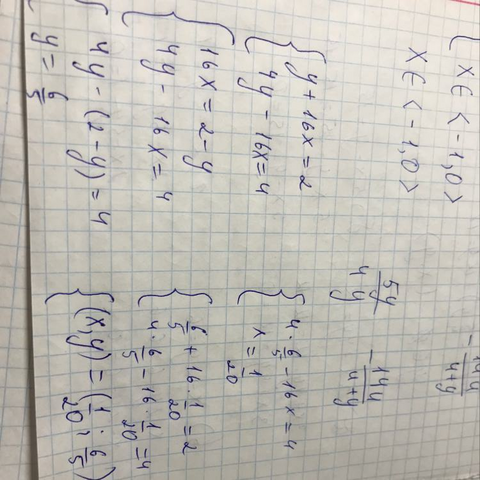 x ∈ <-1,0>
x ∈ <-1,0>
{ y + 16x = 2
4y - 16x = 4
{ 16x = 2 - y
4y - 16x = 4
{ 4y - (2 - y) = 4
y = 6/5
-14y/4+y
5y/4y - 14y/4+y
{ 4 · 6/5 - 16x = 4
x = 1/20
{ 6/5 + 16 · 1/20 = 2
4 · 6/5 - 16 · 1/20 = 4
{ (x, y) = (1/20 ; 6/5)